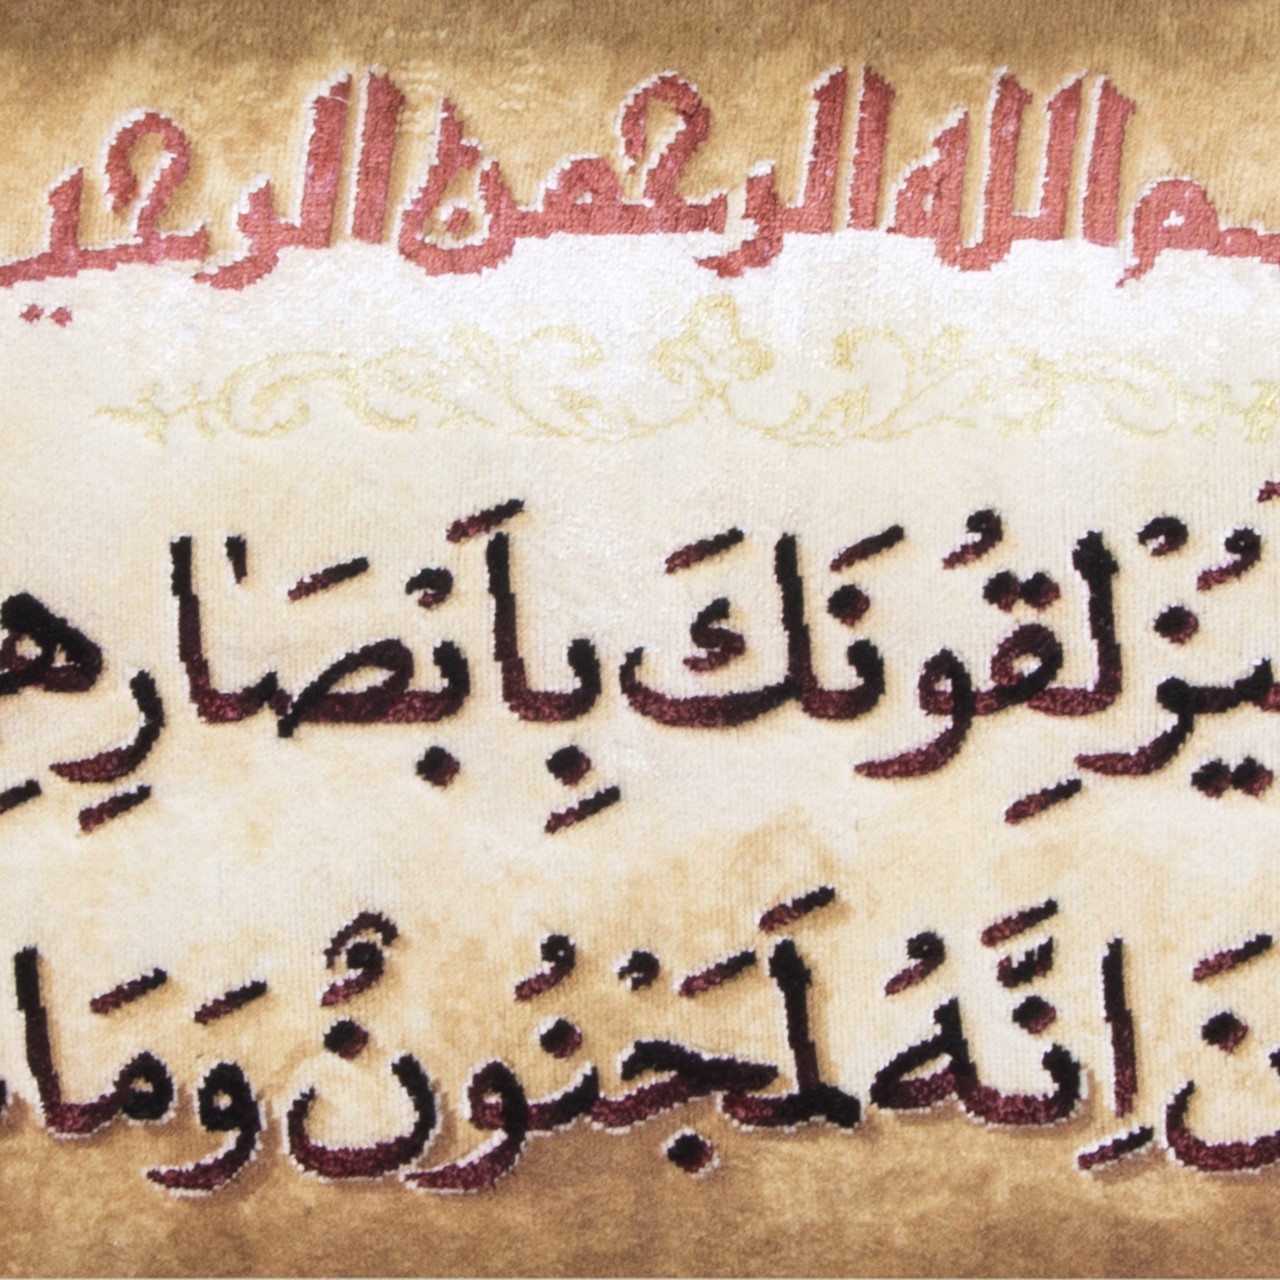 سم الله الرحمن الرحيـ
لَيُزْلِقُونَكَ بِاَبْصَارِهِ
نَ اِنَّهُ لَمَجْنُونٌ وَمَا